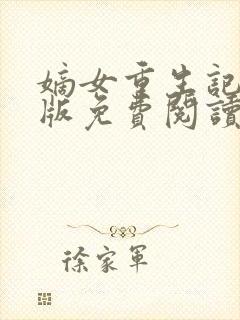 嫡女重生記
版免費閱讀
徐家軍